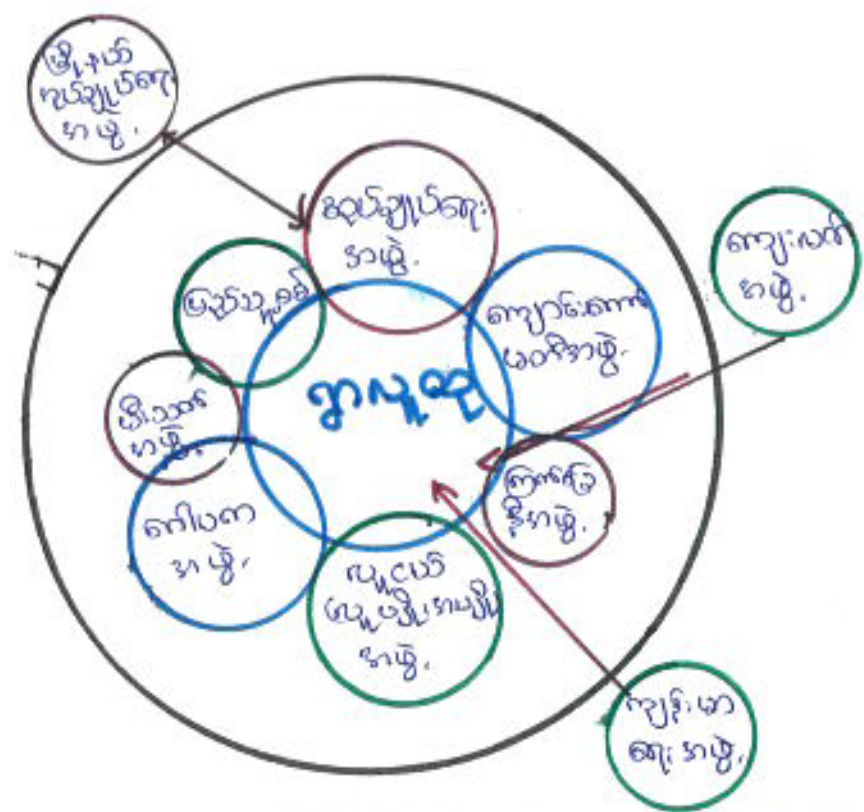 မြို့နယ်
အုပ်ချုပ်ရေး
အဖွဲ့.
အုပ်ချုပ်ရေး
အဖွဲ့.
ကျေးလက်
အဖွဲ့.
ပြည်သူ့စစ်
ကျောင်းကော်
မတီအဖွဲ့.
ရွာလူထု
မီးသတ်
အဖွဲ့.
ကြက်ခြေ
နီအဖွဲ့.
ဂေါပက
အဖွဲ့.
လူငယ်
အဖွဲ့.
ကျန်းမာ
ရေးအဖွဲ့.